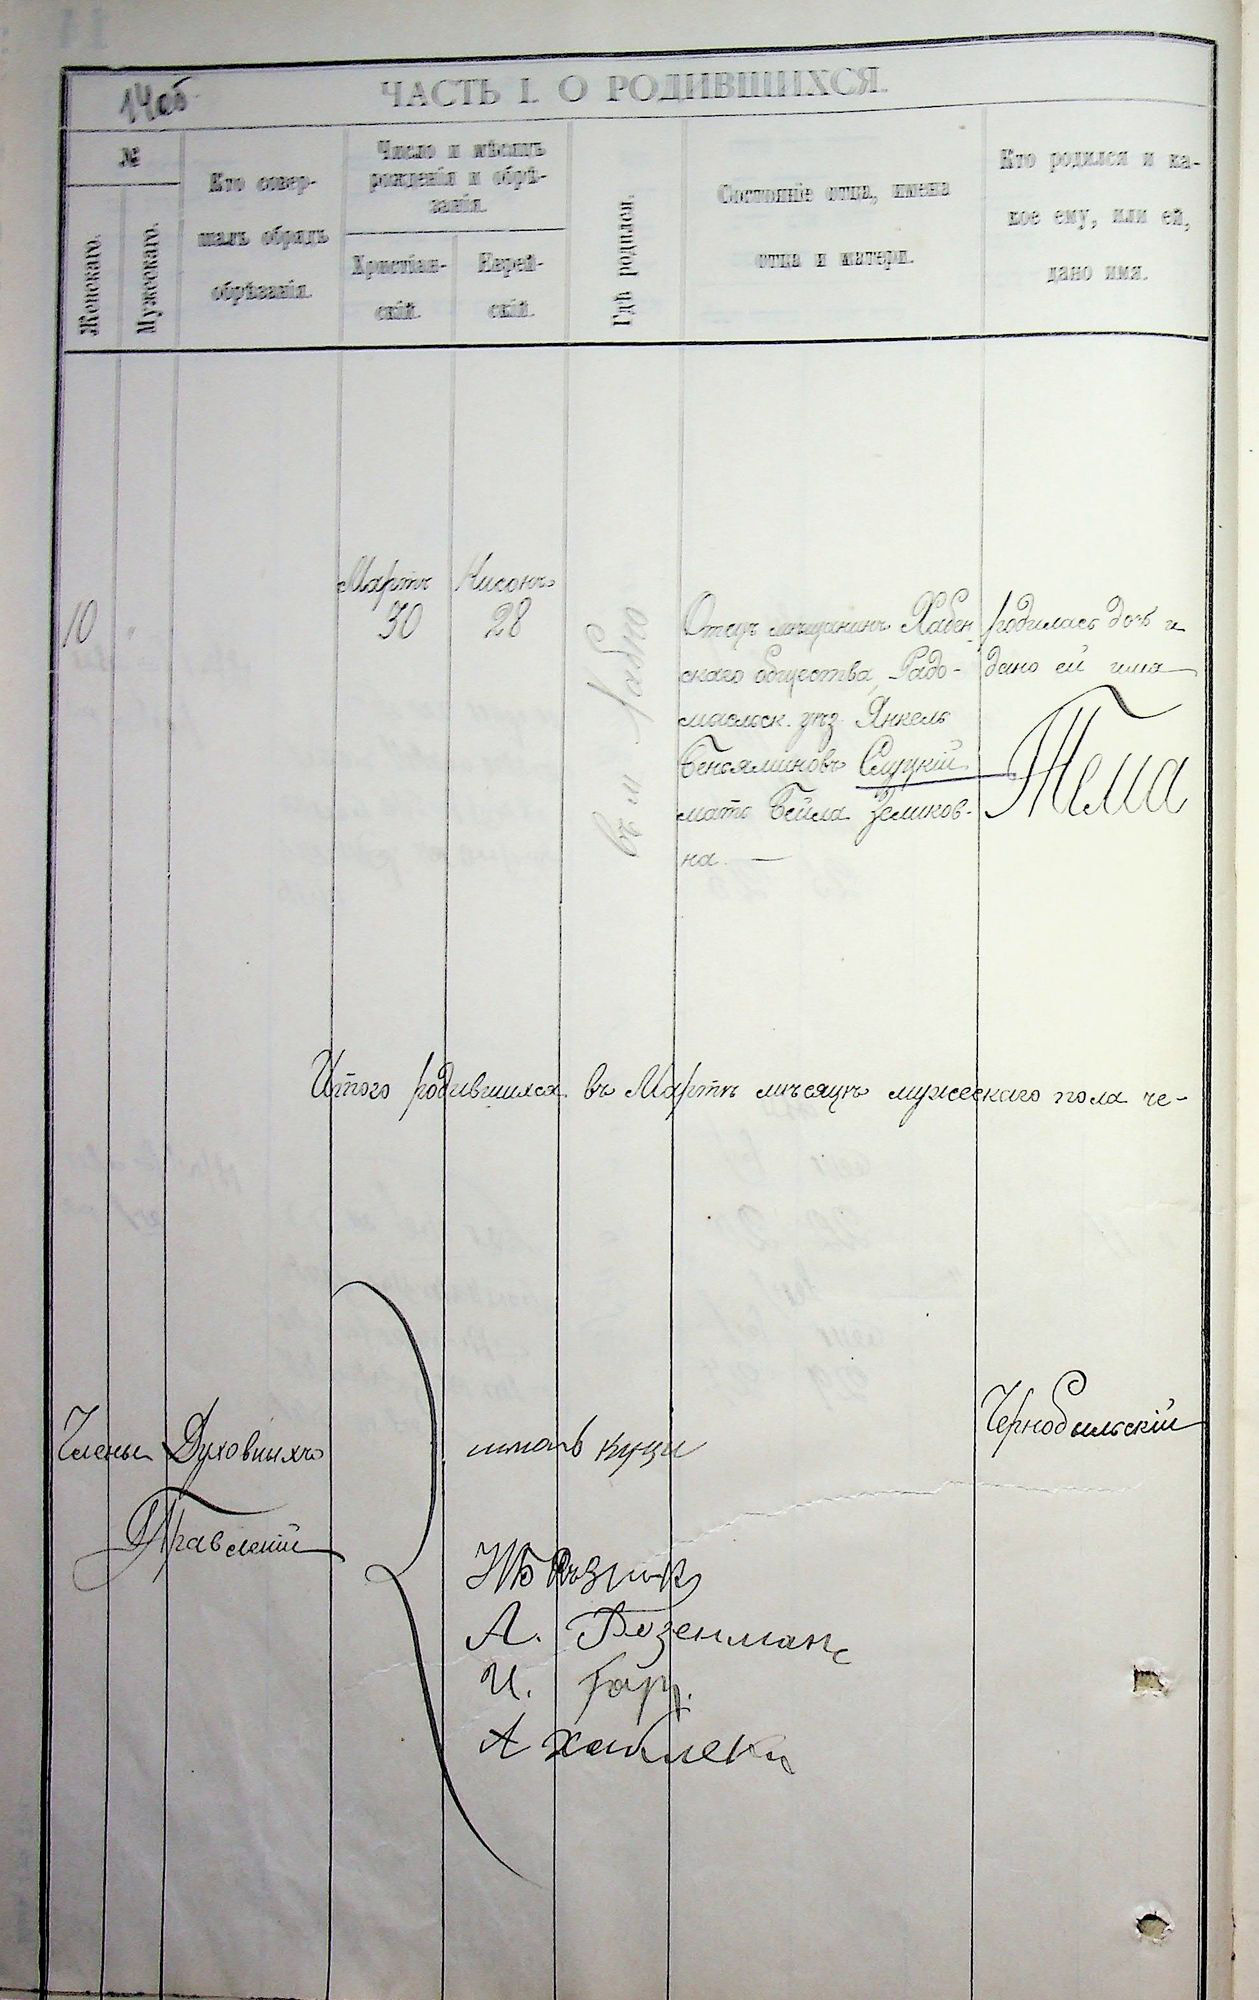 14об
ЧАСТЬ I. О РОДИВШИХСЯ.
№
Женскаго.
Мужескаго.
Кто совер-
шалъ обрядъ
обрѣзанія.
Число и мѣсяцъ
рожденія и обрѣ-
занія.
Христіан-
скій.
Еврей-
скій.
Гдѣ родился.
Состояніе отца, имена
отца и матери.
Кто родился и ка-
кое ему, или ей,
дано имя.
10
Мартъ
30
Нисонъ
28
въ м Хабно
Отецъ мѣщанинъ Хабен
скаго общества, Радо-
мысльск. уѣз. Янкель
Беньяминовъ Слуцкій
мать Бейла Зеликов-
на. —
родилась дочь и
дано ей имя
Тема
Итого родившихся въ Мартѣ мѣсяцѣ мужескаго пола че-
Члены Духовныхъ
Правленій
Чернобыльскій
А.
И.
А